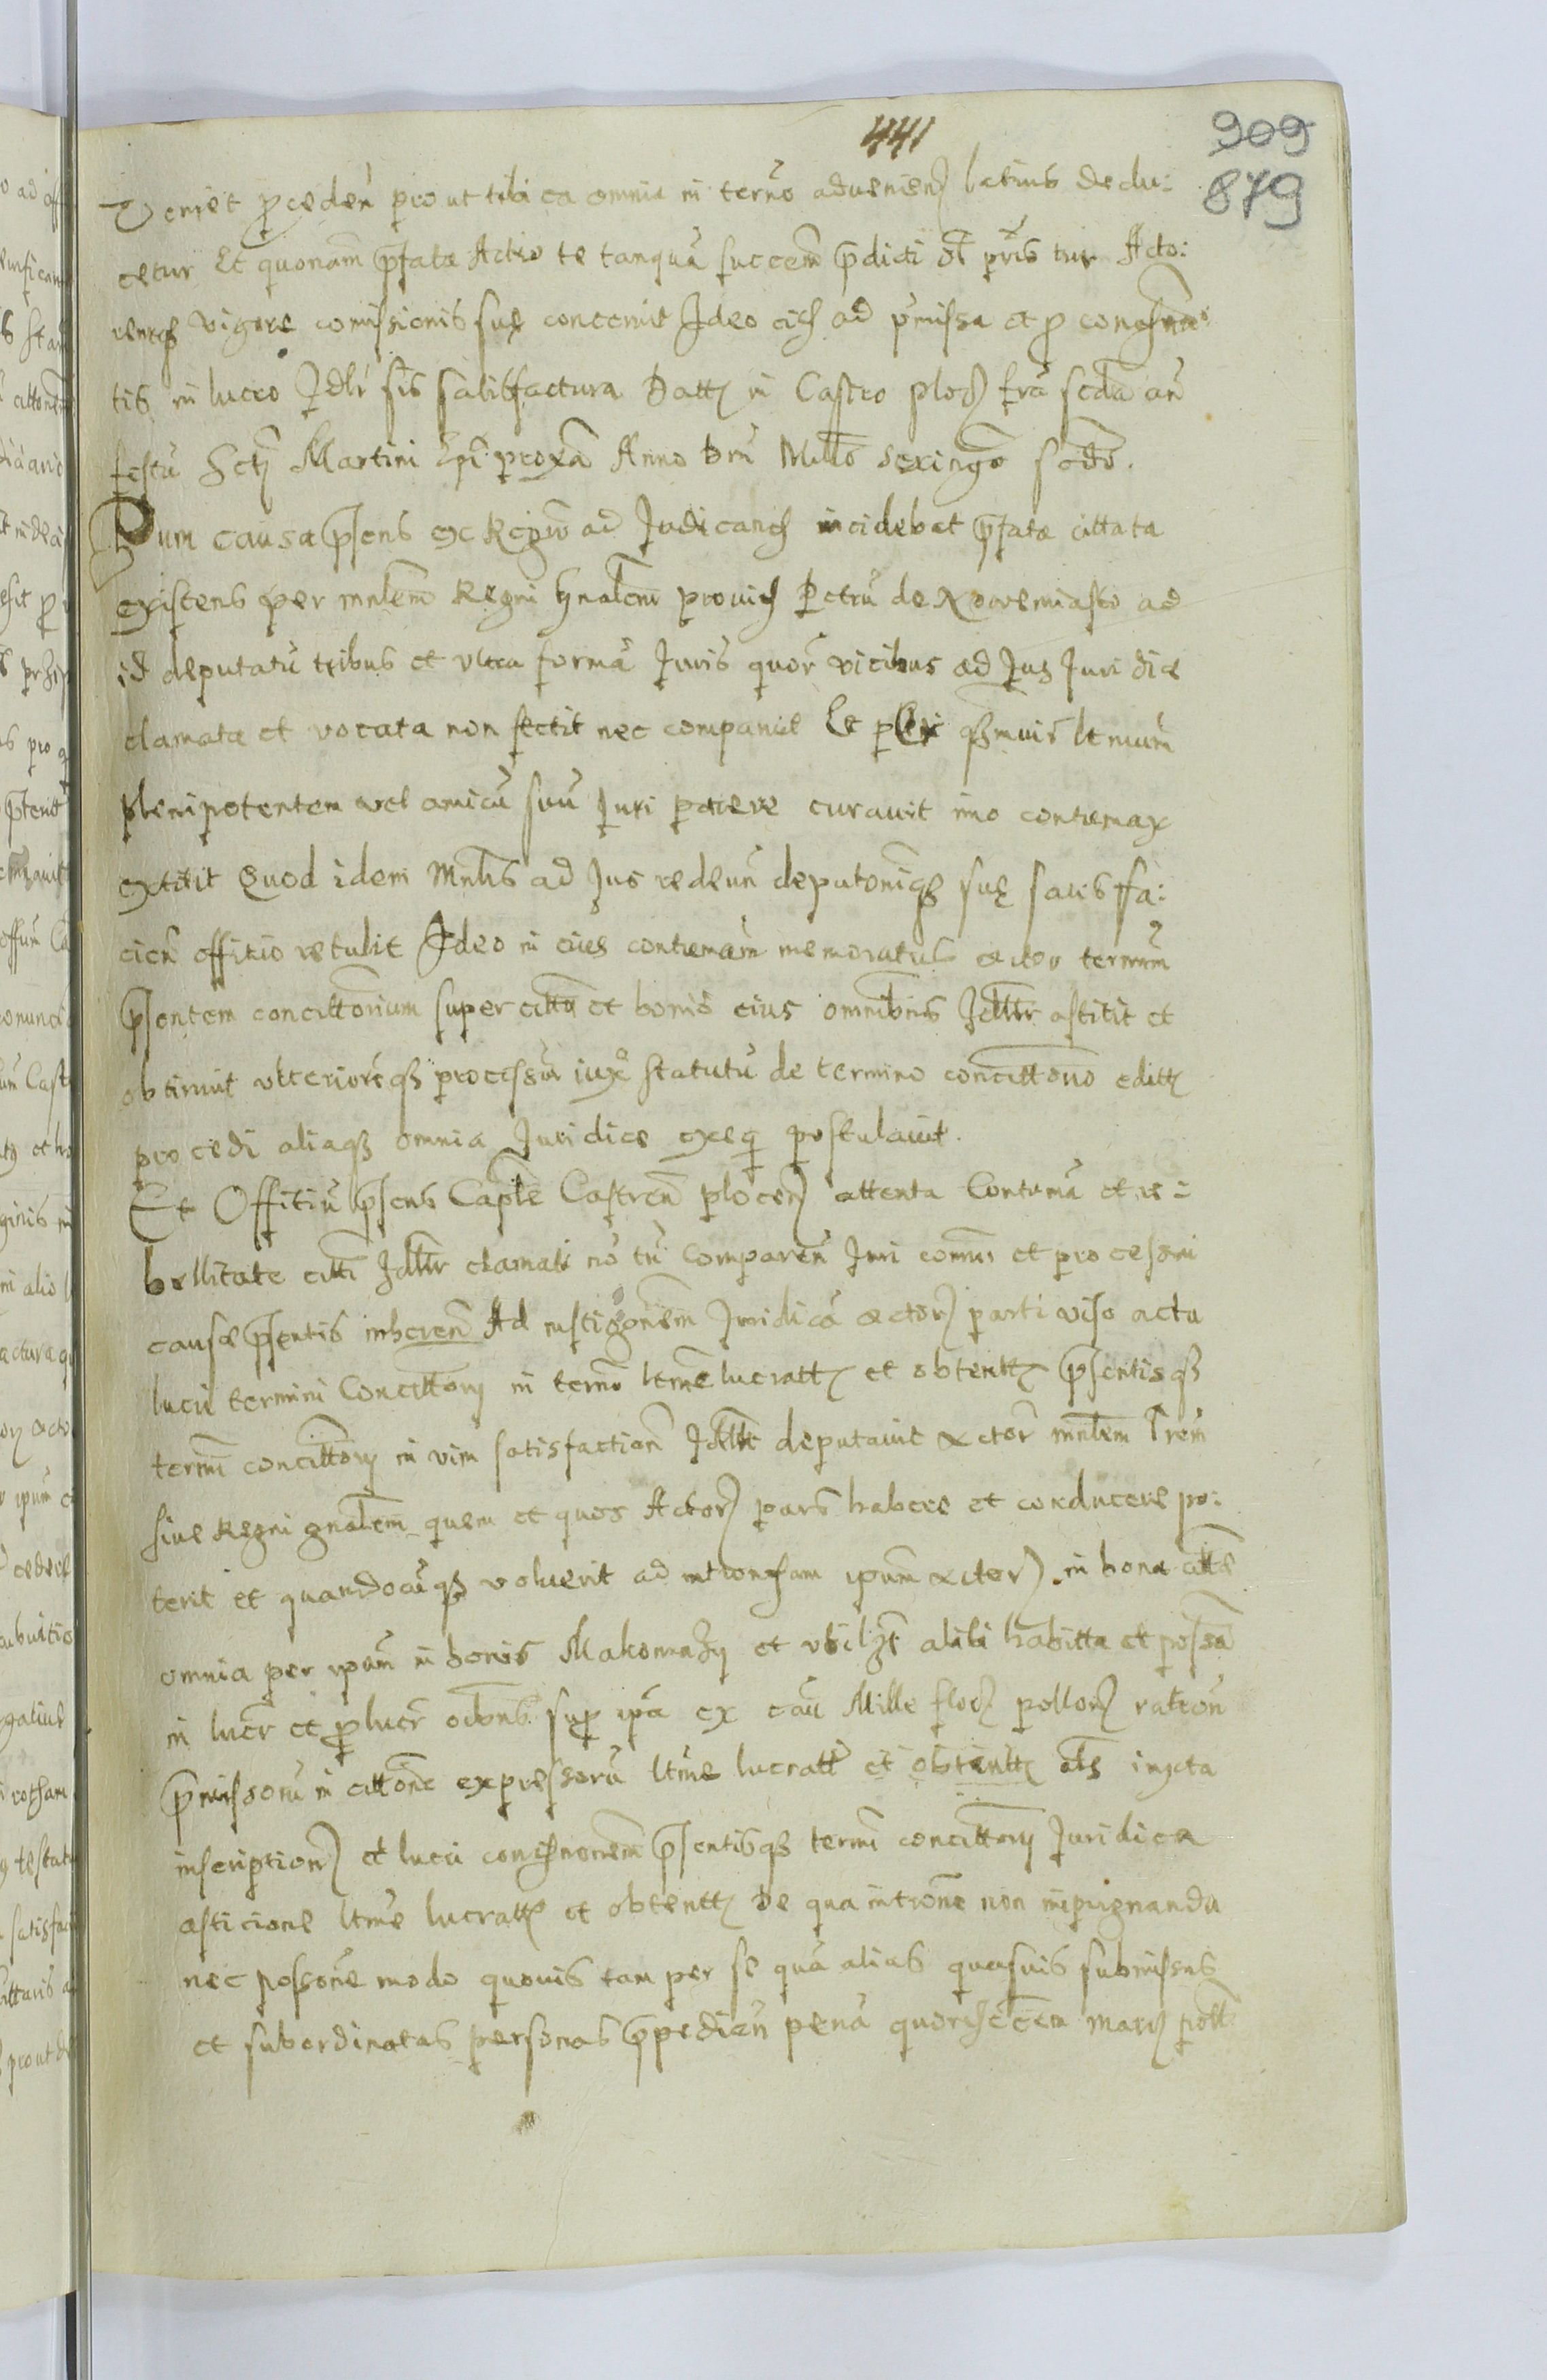 441
909
879
veniet proceden prout tibi ea omnia in terno advenien latius dedu:
cetur Et quonam pfata Actio te tanqua succem pdicti olt pris tui Acto:
remqs vigore comissionis sue concernit Ideo cits ad pmissa et p consna
tis in lucro Idlr sis satisfactura Datt in Castro ploc fra scda an
festu Scti Martini Epi proxa Anno Dni Millo sexingo scdo.
Dum causa psens ex Regro ad Judicand incidebat pfata cittata
existens per mnlem Regni gnalem provid Petru de Nowemiasto ad
id deputatu tribus et ultra forma Juris quor vicibus ad Jus Juridice
clamata et vocata non stetit nec comparuit Et qsmvis ltimum
plenipotentem vel amicu suu Juri parere curavit imo contumax
extitit Quod idem Mnlis ad Jus redeun deputoniqs sue satisfa:
cien offitio retulit Ideo in eius contumam memoratus actor termum
psentem concittorium super citta et bonis eius omnibus Jdlltr astitit et
obtinuit ulterioreqs processu iuxa statutu de termino concittorio editt
procedi aliaqs omnia Juridice exeq postulavit.
Et Offitiu psens Caple Castren plocen attenta Contuma et re:
bellitate citti Jdlltr clamati no tn comparen Juri comuni et processui
causæ psentis inheren Ad instigonem Juridica actor parti viso actu
lucri termini Concittory in terno ltme lucratt et obtentt psentisqs
termi concittory in vim satisfaction Jdllt deputavit actori mnlem Trem
sive Regni gnalem quem et quos Actor pars habere et conducere po:
terit et quandocuqs voluerit ad intromsam ipum actor in bona citte
omnia per ipum in bonis Makomazy et ubilzt alibi habitta et possa
in lucr et p lucr odons sup ipa ex cau Mille floc pollor ration
pmissoru in cittone expressoru ltme lucratt et obtentt als iuxta
inscription et lucri consnonem psentisqs termi concittory Juridica
asticione ltme lucratt et obtentt De qua introne non impugnanda
nec possone modo quovis tam per se qua alias quasvis submissas
et subordinatas personas ppedien pena marc poll